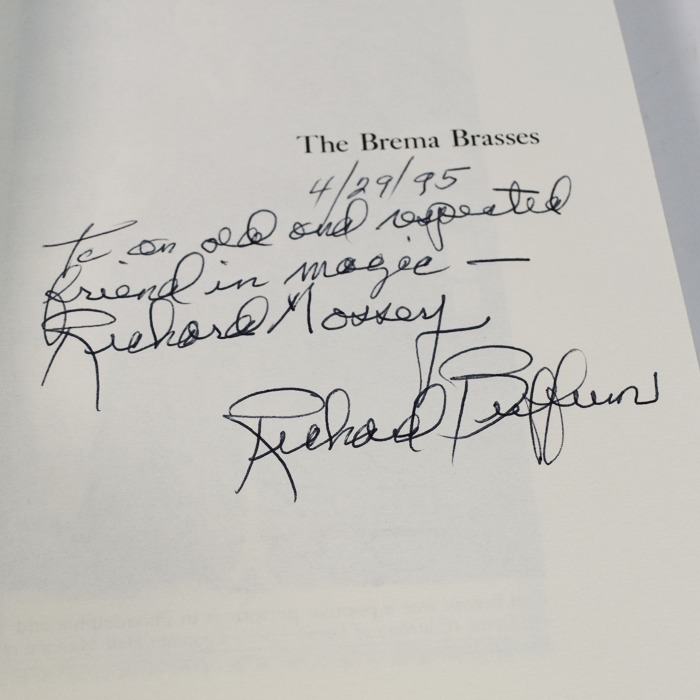 The Brema Brasses
4/29/95
To an old and respected
friend in magic —
Richard Mossey
Richard Buffum